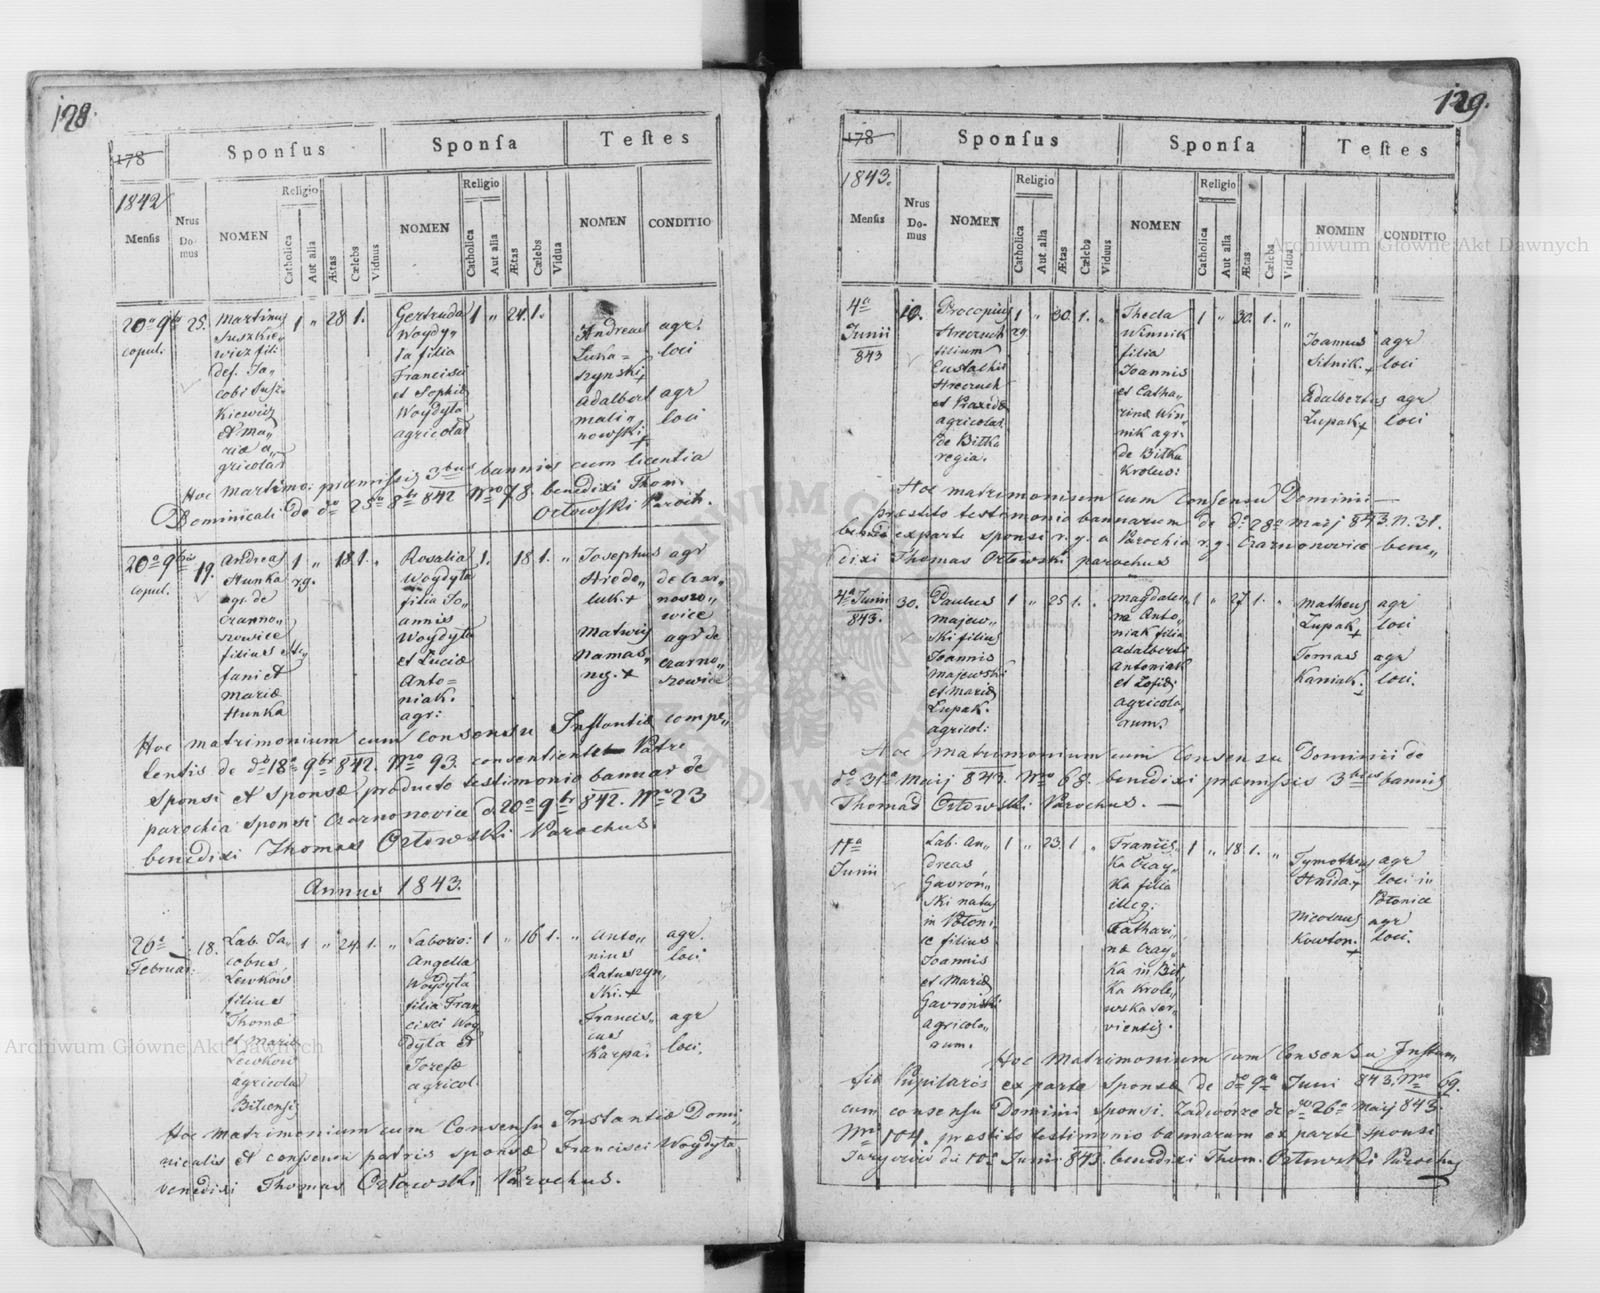 128.
178
Sponſus
Sponſa
Teſtes
1842
Menſis
Nrus
Do-
mus
NOMEN
Religio
Catholica
Aut alia
Ætas
Cælebs
Viduus
NOMEN
Religio
Catholica
Aut alia
Ætas
Cælebs
Vidua
NOMEN
CONDITIO
20a 9bris
copul.
25.
Martinus
Suszkie„
wicz fili
def. Ja„
cobi Susz„
Kiewicz
et Ma„
riæ a„
gricolar
1 „ 28 1.
Gertruda
Woydy„
ła filia
Francisci
et Sophiæ
Woydyła
agricolar
1 „ 24. 1.
Andreas
Luka=
szynski +
agr.
loci
Adalbert
mali„
nowski +
agr
loci
Hoc Martimo: præmissis 3bus bannis cum licentia
Dominicali de do 25a 8br 842 Nro 78 benedixi Thom
Orłowski Paroch.
20a 9bris
copul.
19.
Andreas
Hunka
agr. de
Czarno„
szowice
filius Ste„
fani et
Mariæ
Hunka
1 r.g. „ 18 1. „
Rosalia
Woydyła
filia Jo„
annis
Woydyła
et Luciæ
Anto=
niak.
agr:
1. 18 1. „
Josephus
Hrede„
luk. +
agr
de Czar„
noszo„
wice
Matwij
Namas„
ny. +
agr de
Czarno„
szowice
Hoc matrimonium cum Consensu Instantiæ compe„
tentis de do 18a 9br 842. Nro 93. consentiente Patre
sponsi et sponsæ producto testimonio bannar de
parochia sponsi Czarnonovice d. 20a 9br 842. Nro 23
benedixi Thomas Orłowski Parochus.
Annus 1843.
26a
Februar:
18.
Lab. Ja„
cobus
Lewkow
filius
Thomæ
et Mariæ
Lewkow
agricola
Bilcensis
1 „ 24. 1. „
Laborio:
Angella
Woydyła
filia Fran
cisci Woy
dyła et
Josefæ
agricol.
1 „ 16 1. „
Anto„
nius
Ratuszyn„
ski. +
agr.
loci
Francis„
cus
Karpa.
agr
loci.
Hoc matrimonium cum Consensu Instantiæ Domi„
nicalis et consensu patris sponsæ Francisci Woydyła
benedixi Thomas Orłowski Parochus.
129.
178
Sponſus
Sponſa
Teſtes
1843.
Menſis
Nrus
Do-
mus
NOMEN
Religio
Catholica
Aut alia
Ætas
Cælebs
Viduus
NOMEN
Religio
Catholica
Aut alia
Ætas
Cælebs
Vidua
NOMEN
CONDITIO
4a
Junii
843
10.
Procopius
Hreczuch
filium
Eustachii
Hreczuch
et Paraxedæ
agricolar.
de Biłka
regia.
1 r.g. „ 30. 1. „
Thecla
Winnik
filia
Joannis
et Catha„
rinæ Win„
nik agr.
de Biłka
Krolews:
1 „ 30. 1. „
Joannus
Sitnik. +
agr
loci
Adalbertus
Łupak +
agr
loci
Hoc matrimonium cum Consensu Dominii
præstito testimonio bannarum de do 28a Maij 843. N. 31.
ex parte sponsi r. g. a Parochia r.g. Czarnonovice bene„
dixi Thomas Orłowski parochus
4a Junii
843.
30.
Paulus
Majew„
ski filius
Joannis
Majewski
et Mariæ
Łupak.
agricol:
1 „ 25 1. „
Magdale„
na Anto„
niak filia
Adalberti
Antoniak
et Zofiæ
agricola„
rum.
1 „ 27 1. „
Matheus
Łupak +
agr
loci
Tomas
Kaniak. +
agr
loci.
Hoc Matrimonium cum Consensu Dominii de
do 31a Maij 843. Nro 68. benedixi præmissis 3bus bannis
Thomas Orłowski Parochus.
17a
Junii
Lab. An„
dreas
Gawroń„
ski natus
in Płoni„
ic filius
Joannis
et Mariæ
Gavronski
agricola„
rum.
1 „ 23. 1 „
Francis„
ka Czay„
ka filia
illeg:
Cathari„
næ Czay„
ka in Bił„
ka Krole„
wska ser„
vientis.
1 „ 18 1. „
Tymotheus
Hnida +
agr
loci in
Płonice
Nicolaus
Kowton. +
agr
loci.
Hoc Matrimonium cum Consensu Instan„
tiæ Pupilaris ex parte sponsæ de do 9a Juni 843. Nro 69.
cum consensu Dominii sponsi. Zadworze de do 26a Maij 843.
Nro 104. præstito testimonio bannarum ex parte sponsi
Jaryczów do 10a Junii 843. benedixi Thom. Orłowski Parochus
Archiwum Główne Akt Dawnych
Archiwum Główne Akt Dawnych